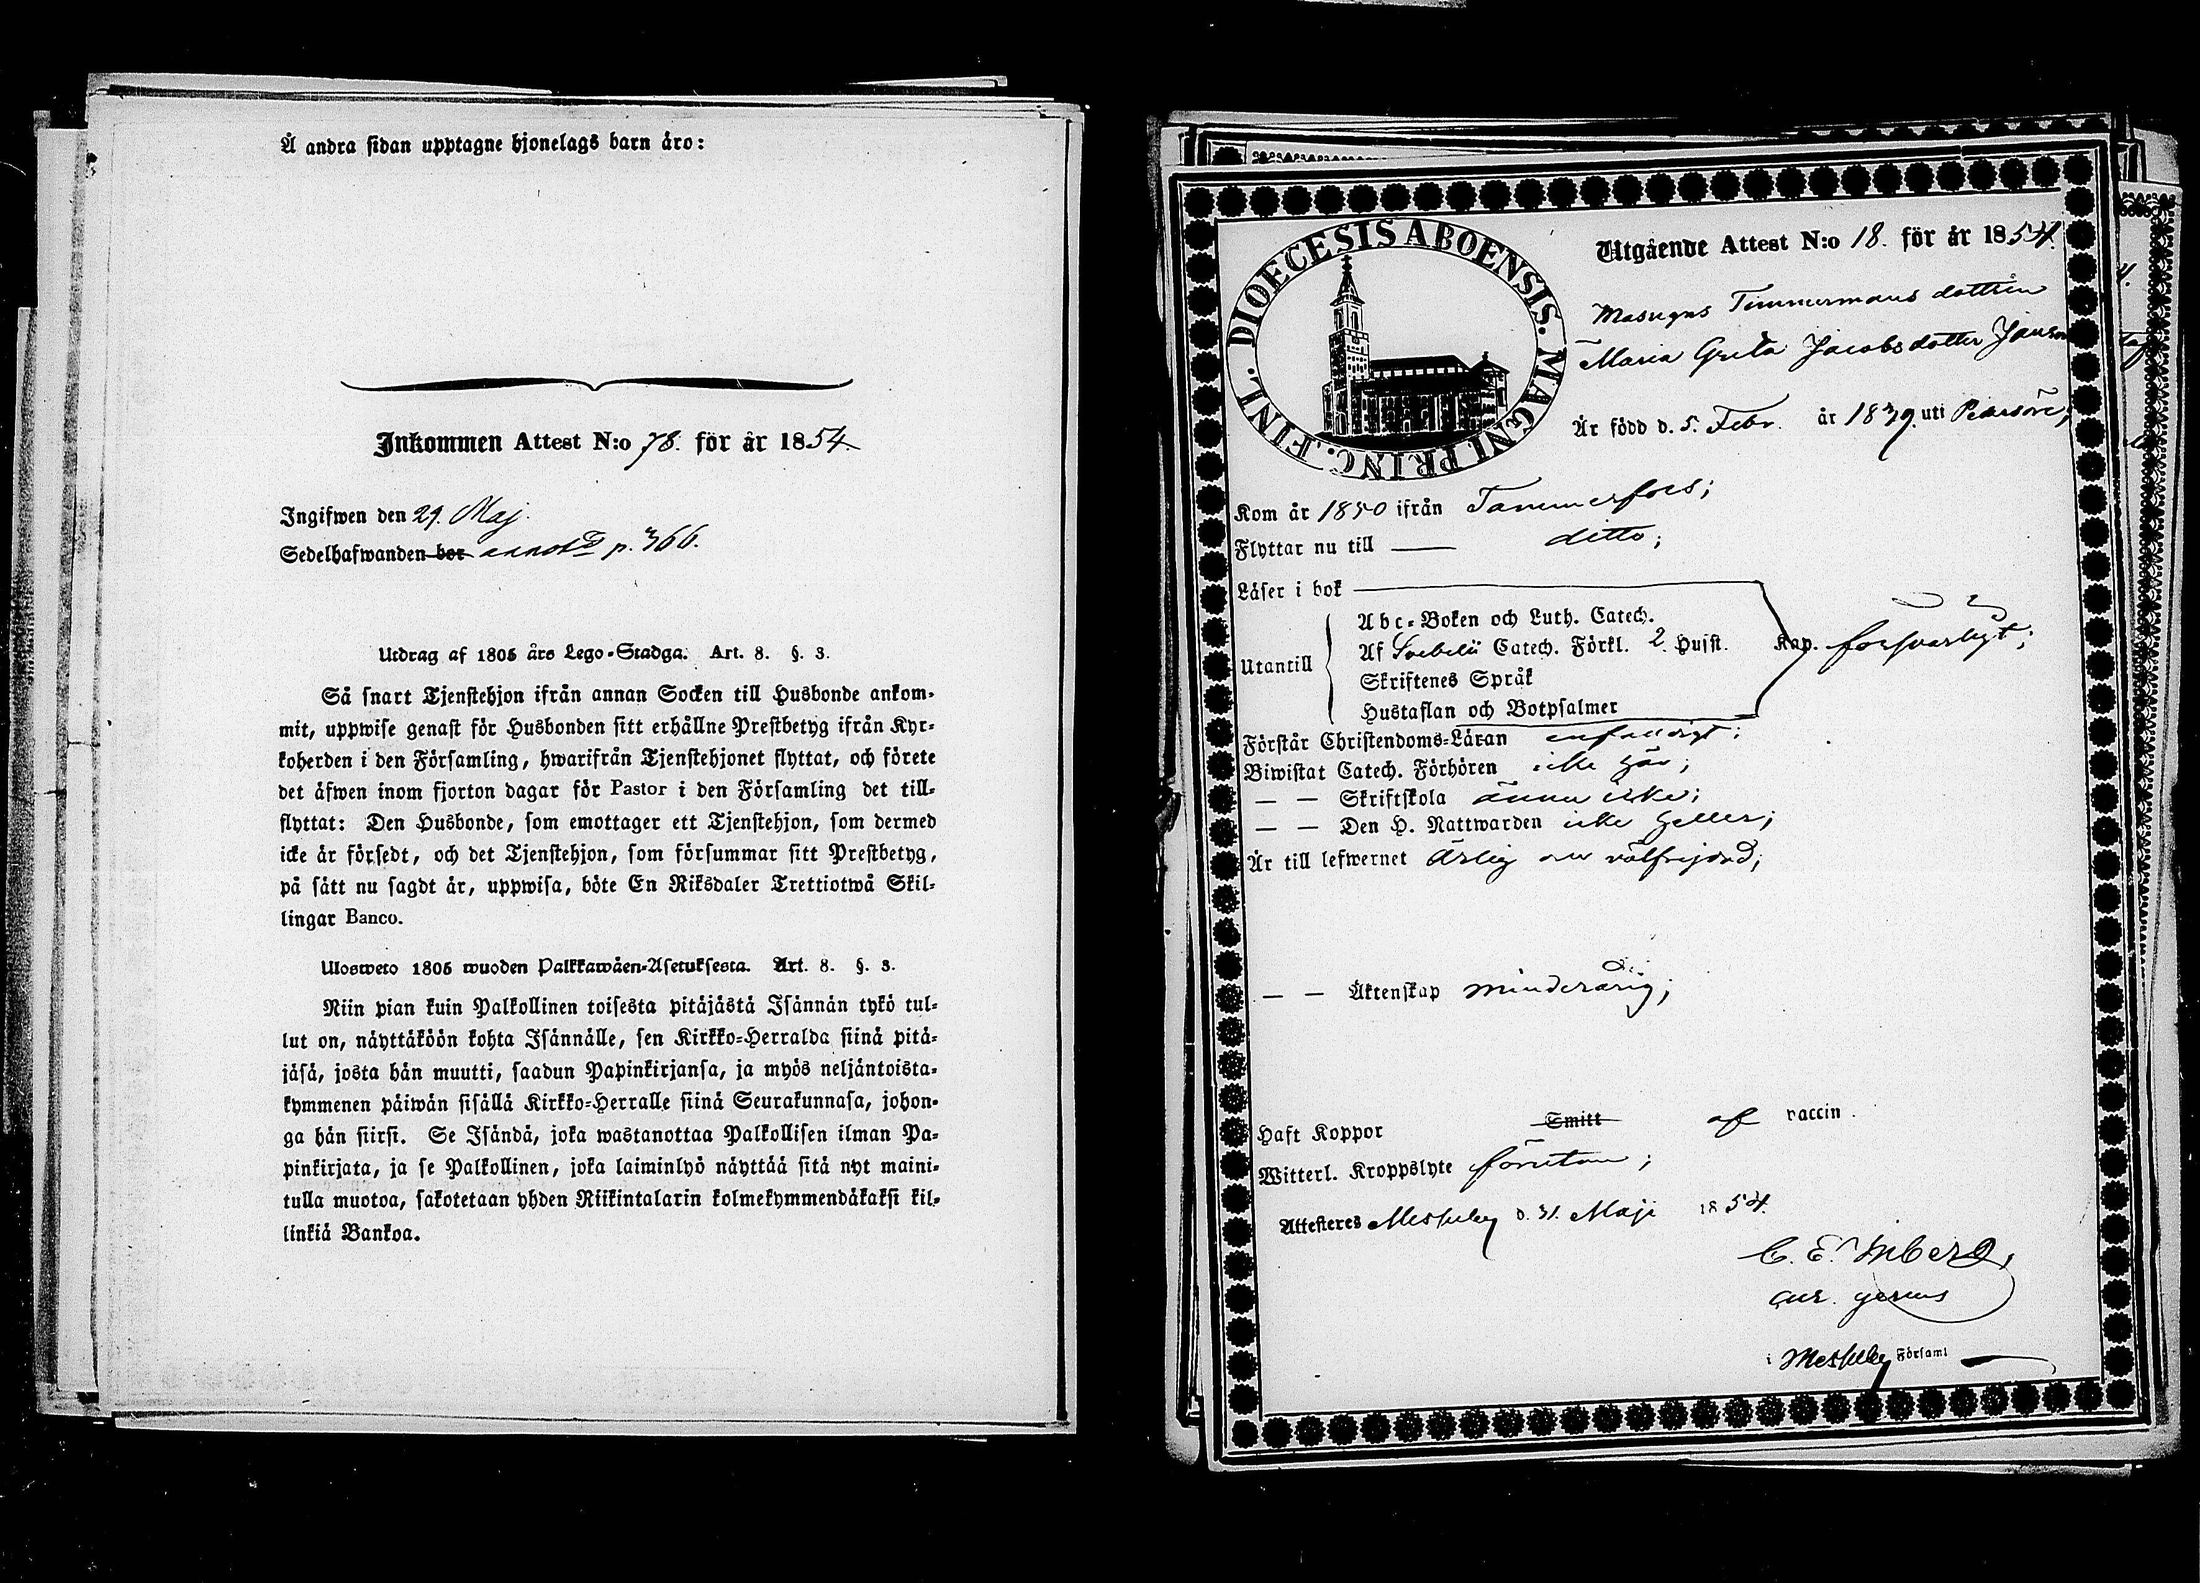 Å andra sidan upptagne hjonelags barn äro:
Inkommen Attest N:o 78. för år 1854.
Ingifwen den 29. Maj.
Sedelhafwanden bor p. 366.
Utdrag af 1805 års Lego-Stadga. Art. 8. §. 3.
Så snart Tjenstehjon ifrån annan Socken till Husbonde ankom-
mit, uppwise genast för Husbonden sitt erhållne Prestbetyg ifrån Kyr-
koherden i den Församling, hwarifrån Tjenstehjonet flyttat, och förete
det äfwen inom fjorton dagar för Pastor i den Församling det till-
flyttat: Den Husbonde, som emottager ett Tjenstehjon, som dermed
icke är försedt, och det Tjenstehjon, som försummar sitt Prestbetyg,
på sätt nu sagdt är, uppwisa, böte En Riksdaler Trettiotwå Skil-
lingar Banco.
Ulosweto 1805 wuoden Palkkawäen-Asetuksesta. Art. 8. §. 3.
Niin pian kuin Palkollinen toisesta pitäjästä Isännän tykö tul-
lut on, näyttäköön kohta Isännälle, sen Kirkko-Herralda siinä pitä-
jäsä, josta hän muutti, saadun Papinkirjansa, ja myös neljäntoista-
kymmenen päiwän sisällä Kirkko-Herralle siinä Seurakunnasa, johon-
ga hän siirsi. Se Isändä, joka wastanottaa Palkollisen ilman Pa-
pinkirjata, ja se Palkollinen, joka laiminlyö näyttää sitä nyt maini-
tulla muotoa, sakotetaan yhden Riikintalarin kolmekymmendäkaksi kil-
linkiä Bankoa.
DIOECESIS ABOENSIS. MAGNI PRINC. FINL.
Utgående Attest N:o 18. för år 1854.
Masugns Timmermans dottren
Maria Greta Jacobsdotter Janson
Är född d. 5. Febr. år 1839. uti Pedersöre;
Kom år 1850 ifrån Tammerfors;
Flyttar nu till — ditto;
Läser i bok
Abc-Boken och Luth. Catech.
Utantill Af Svebelii Catech. Förkl. 2 Husst. Kap. försvarligt;
Skriftenes Språk
Hustaflan och Botpsalmer
Förstår Christendoms-Läran enfaldigt;
Biwistat Catech. Förhören icke här;
— — Skriftskola ännu icke;
— — Den H. Nattwarden icke heller;
Är till lefwernet ärlig och välfrejdad;
— — Äktenskap minderårig;
Haft Koppor Smitt af vaccin.
Witterl. Kroppslyte förutan;
Attesteres Messuby d. 31. Maji 1854.
C. E.
i Messuby Församl